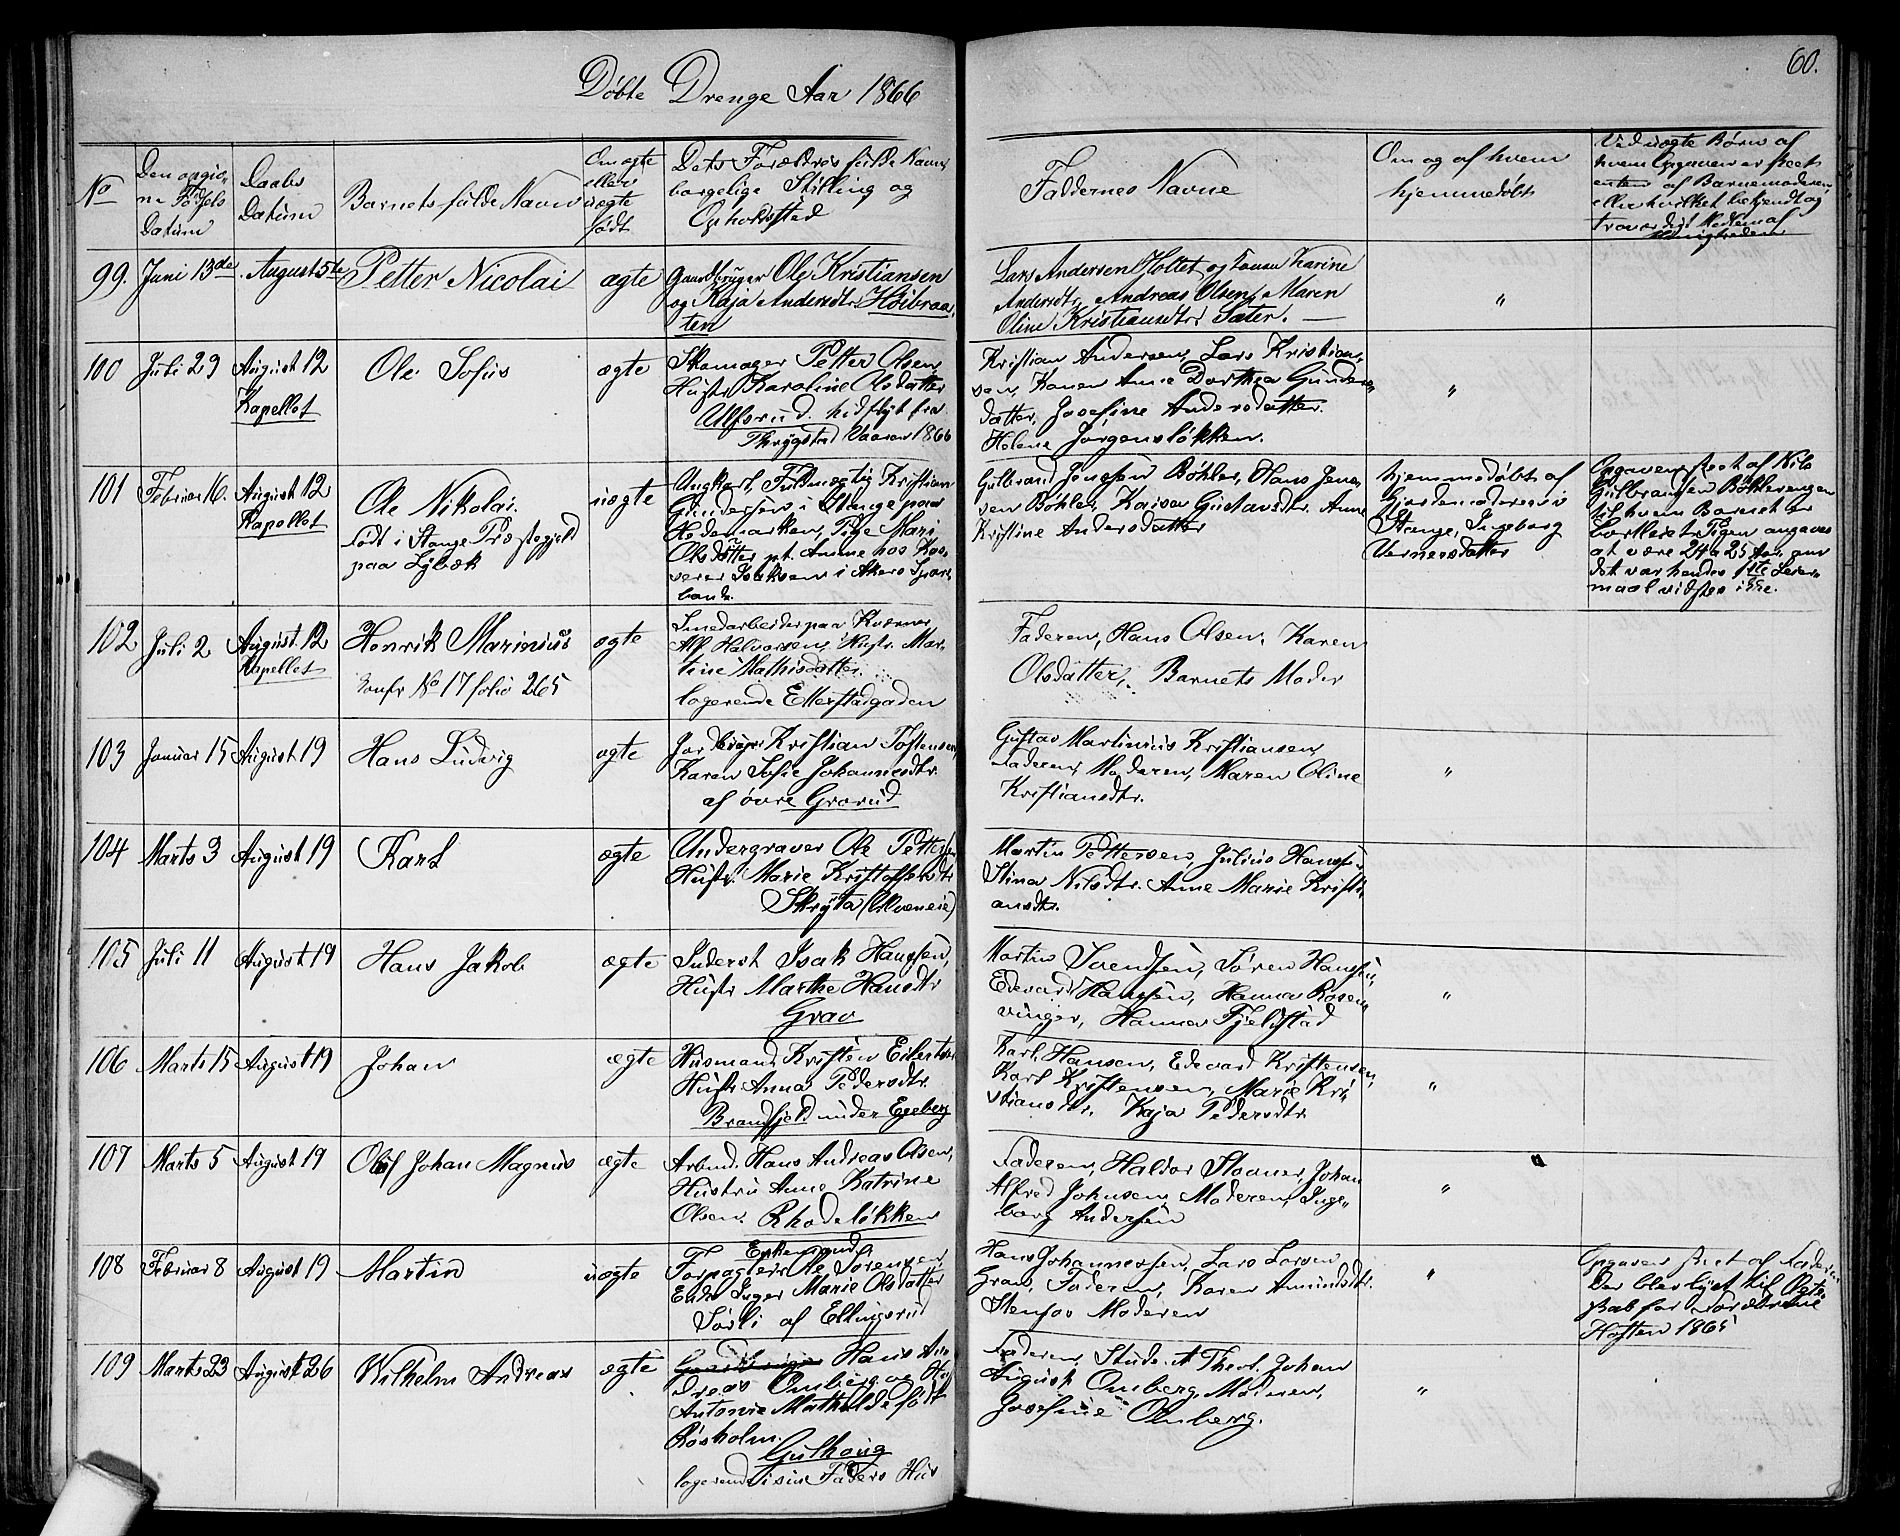 60.
Døbte Drenge Aar 1866
No
Den angiv-
ne Fødsels
Datum
Daabs
Datum
Barnets fulde Navn
Om ægte
eller
uægte
født
Dets Forældres fulde Navn,
borgelige Stilling og
Opholdssted
Faddernes Navne
Om og af hvem
hjemmedøbt
Ved uægte Børn af
hvem Opgaven er skeet
enten af Barnemoderen,
eller hvilket bekjendt og
troværdigt Medlem af
Menigheden
99. Juni 13de August 5te Petter Nicolai ægte
Gaardbruger Ole Kristiansen
og Kaja Andersdtr. Høibraa-
ten
Lars Andersen Holtet og konen Karine
Andersdtr, Andreas Olsen, Maren
Oline Kristiansdtr. Sæter. —
"
100 Juli 29 August 12
Kapellet
Ole Sofus
ægte
Skomager Petter Olsen
Hustr Karoline Olsdatter
Ulfsrud. hidflyt. fra
Thrygstad Vaaren 1866
Kristian Andersen, Lars Kristian-
sen, Konen Anne Dorthea Gunders-
datter, Josefine Andersdatter.
Helene Jørgensløkken.
"
101 Februar 16. August 12
Kapellet
Ole Nikolai.
født i Stange Præstegjeld
paa Lybæk
uægte
Ungkarl, Fuldmægtig Kristian
Gundersen i Stange paa
Hedemarken, Pige Mari
Olsdatter pt. Amme hos Kas-
serer Isaksen i Akers Spare-
bank.
Gulbrand Jensen Bøhler, Hans Jen-
sen Bøhler, Kaisa Gustavsdtr. Anne
Kristine Andersdatter
hjemmedøbt af
Gjordemoderen i
Stange, Ingeborg
Vernersdatter
Opgaven skeet af Nils
Gulbransen Bøhlerengen
til hvem Barnet er
bortleiet Pigen angaves
at være 24 a 25 Aar, om
det var hendes 1ste Leier-
maal vidstes ikke.
102 Juli 2 August 12
Kapellet
Henrik Marinius
Konfr No 17 folio 265
ægte
Smedarbeider paa Kværner
Alf Halvorsen, Hustr. Mar-
tine Mathisdatter
logerende Etterstadgaden
Faderen, Hans Olsen, Karen
Olsdatter, Barnets Moder
103 Januar 15 August 19 Hans Ludvig ægte
Jordbruger Kristian Tostensen
Karen Sofie Johannesdtr.
af øvre Grorud
Gustav Martinius Kristiansen
Faderen, Moderen, Maren Oline
Kristiansdtr.
"
104 Marts 3 August 19 Karl ægte
Undergraver Ole Pettersen
Hustr. Marie Kristofersdtr
Skryta (Alvøneie)
Martin Pettersen, Julius Hansen
Stina Nilsdtr. Anne Marie Kristi-
ansdtr.
105 Juli 11 August 19 Hans Jakob ægte
Inderst Isak Hanssen,
Hustr Marthe Hansdtr
Grav
Martin Svendsen, Søren Hanssen,
Edevard Hansen, Hanna Rosen-
vinger, Hanna Fjeldstad
"
106 Marts 15 August 19 Johan ægte
Husmand Kristen Eilertsen
Hustr. Anna Pedersdtr.
Brandfjeld under Egeberg
Karl Hansen, Edevard Kristensen,
Karl Kristensen, Marie Kri-
stiansdtr. Kaja Pedersdtr.
"
107 Marts 5 August 19 Oluf Johan Magnus ægte
Arbmd. Hans Andreas Olsen,
Hustru Anne Katrine
Olsen. Rhodeløkken
Faderen, Haldor Stovner, Johan
Alfred Johnsen, Moderen, Inge-
borg Andersen
"
108 Februar 8 August 19 Martin uægte
Enkemand
Forpagter Ole Sørensen
Enke Inger Marie Olsdatter
Sørli af Ellingsrud
Hans Johannessen, Lars Larsen
Gran, Faderen, Karen Amundsdtr.
Stensov Moderen
"
Opgaven skeet af Faderen
Der blev lyst til Ægte-
skab for Forældrene
Høsten 1865
109 Marts 23 August 26 Wilhelm Andreas ægte
Gaardbruger Hans An-
dreas Omberg og Hu
Antonie Mathilde født
Rosholm.
Gulhaug
logerende i sin Faders Hus
Faderen, Stud. Theol. Johan
August Omberg, Moderen,
Josefine Omberg.
"